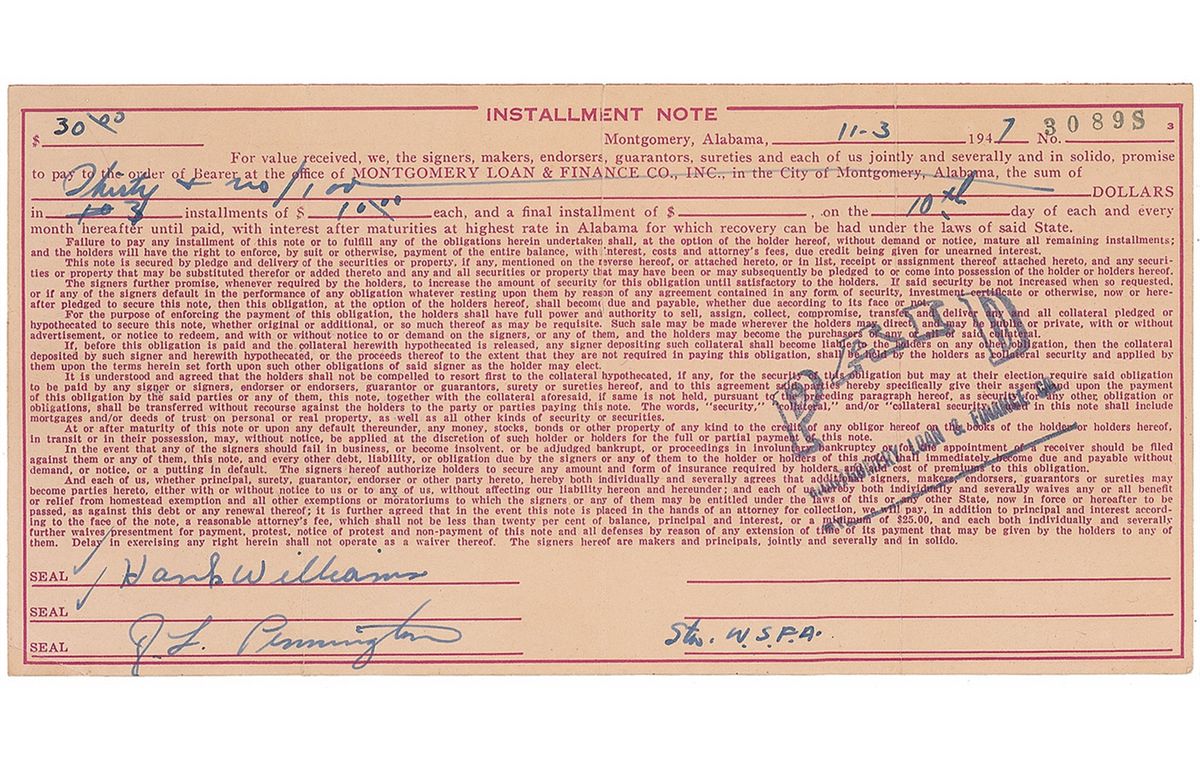 INSTALLMENT NOTE
$ 30 00 Montgomery, Alabama, 11-3 1947 No. 3089S 3
For value received, we, the signers, makers, endorsers, guarantors, sureties and each of us jointly and severally and in solido, promise
to pay to the order of Bearer at the office of MONTGOMERY LOAN & FINANCE CO., INC., in the City of Montgomery, Alabama, the sum of
Thirty + no/100 DOLLARS
in 3 installments of $ 10 00 each, and a final installment of $ , on the 10th day of each and every
month hereafter until paid, with interest after maturities at highest rate in Alabama for which recovery can be had under the laws of said State.
Failure to pay any installment of this note or to fulfill any of the obligations herein undertaken shall, at the option of the holder hereof, without demand or notice, mature all remaining installments;
and the holders will have the right to enforce, by suit or otherwise, payment of the entire balance, with interest, costs and attorney's fees, due credit being given for unearned interest.
This note is secured by pledge and delivery of the securities or property, if any, mentioned on the reverse hereof, or attached hereto, or in list, receipt or assignment thereof attached hereto, and any securi-
ties or property that may be substituted therefor or added thereto and any and all securities or property that may have been or may subsequently be pledged to or come into possession of the holder or holders hereof.
The signers further promise, whenever required by the holders, to increase the amount of security for this obligation until satisfactory to the holders. If said security be not increased when so requested,
or if any of the signers default in the performance of any obligation whatever resting upon them by reason of any agreement contained in any form of security, investment certificate or otherwise, now or here-
after pledged to secure this note, then this obligation, at the option of the holders hereof, shall become due and payable, whether due according to its face or not.
For the purpose of enforcing the payment of this obligation, the holders shall have full power and authority to sell, assign, collect, compromise, transfer and deliver any and all collateral pledged or
hypothecated to secure this note, whether original or additional, or so much thereof as may be requisite. Such sale may be made wherever the holders may direct and may be public or private, with or without
advertisement, or notice to redeem, and with or without notice to or demand on the signers, or any of them, and the holders may become the purchasers of any or all said collateral.
If, before this obligation is paid and the collateral herewith hypothecated is released, any signer depositing such collateral shall become liable to the holders on any other obligation, then the collateral
deposited by such signer and herewith hypothecated, or the proceeds thereof to the extent that they are not required in paying this obligation, shall be held by the holders as collateral security and applied by
them upon the terms herein set forth upon such other obligations of said signer as the holder may elect.
It is understood and agreed that the holders shall not be compelled to resort first to the collateral hypothecated, if any, for the security of this obligation but may at their election require said obligation
to be paid by any signer or signers, endorser or endorsers, guarantor or guarantors, surety or sureties hereof, and to this agreement said parties hereby specifically give their assent and upon the payment
of this obligation by the said parties or any of them, this note, together with the collateral aforesaid, if same is not held, pursuant to the preceding paragraph hereof, as security for any other obligation or
obligations, shall be transferred without recourse against the holders to the party or parties paying this note. The words, "security," "collateral," and/or "collateral security" used in this note shall include
mortgages and/or deeds of trust on personal or real property, as well as all other kinds of security or securities.
At or after maturity of this note or upon any default thereunder, any money, stocks, bonds or other property of any kind to the credit of any obligor hereof on the books of the holder or holders hereof,
in transit or in their possession, may, without notice, be applied at the discretion of such holder or holders for the full or partial payment of this note.
In the event that any of the signers should fail in business, or become insolvent, or be adjudged bankrupt, or proceedings in involuntary bankruptcy or for the appointment of a receiver should be filed
against them or any of them, this note, and every other debt, liability, or obligation due by the signers or any of them to the holder or holders of this note shall immediately become due and payable without
demand, or notice, or a putting in default. The signers hereof authorize holders to secure any amount and form of insurance required by holders and add cost of premiums to this obligation.
And each of us, whether principal, surety, guarantor, endorser or other party hereto, hereby both individually and severally agrees that additional signers, makers, endorsers, guarantors or sureties may
become parties hereto, either with or without notice to us or to any of us, without affecting our liability hereon and hereunder; and each of us hereby both individually and severally waives any or all benefit
or relief from homestead exemption and all other exemptions or moratoriums to which the signers or any of them may be entitled under the laws of this or any other State, now in force or hereafter to be
passed, as against this debt or any renewal thereof; it is further agreed that in the event this note is placed in the hands of an attorney for collection, we will pay, in addition to principal and interest accord-
ing to the face of the note, a reasonable attorney's fee, which shall not be less than twenty per cent of balance, principal and interest, or a minimum of $25.00, and each both individually and severally
further waives presentment for payment, protest, notice of protest and non-payment of this note and all defenses by reason of any extension of time of its payment that may be given by the holders to any of
them. Delay in exercising any right herein shall not operate as a waiver thereof. The signers hereof are makers and principals, jointly and severally and in solido.
PAID
MONTGOMERY LOAN & FINANCE CO.
SEAL Hank Williams
SEAL
SEAL J. L. Pennington Sta. W.S.F.A.